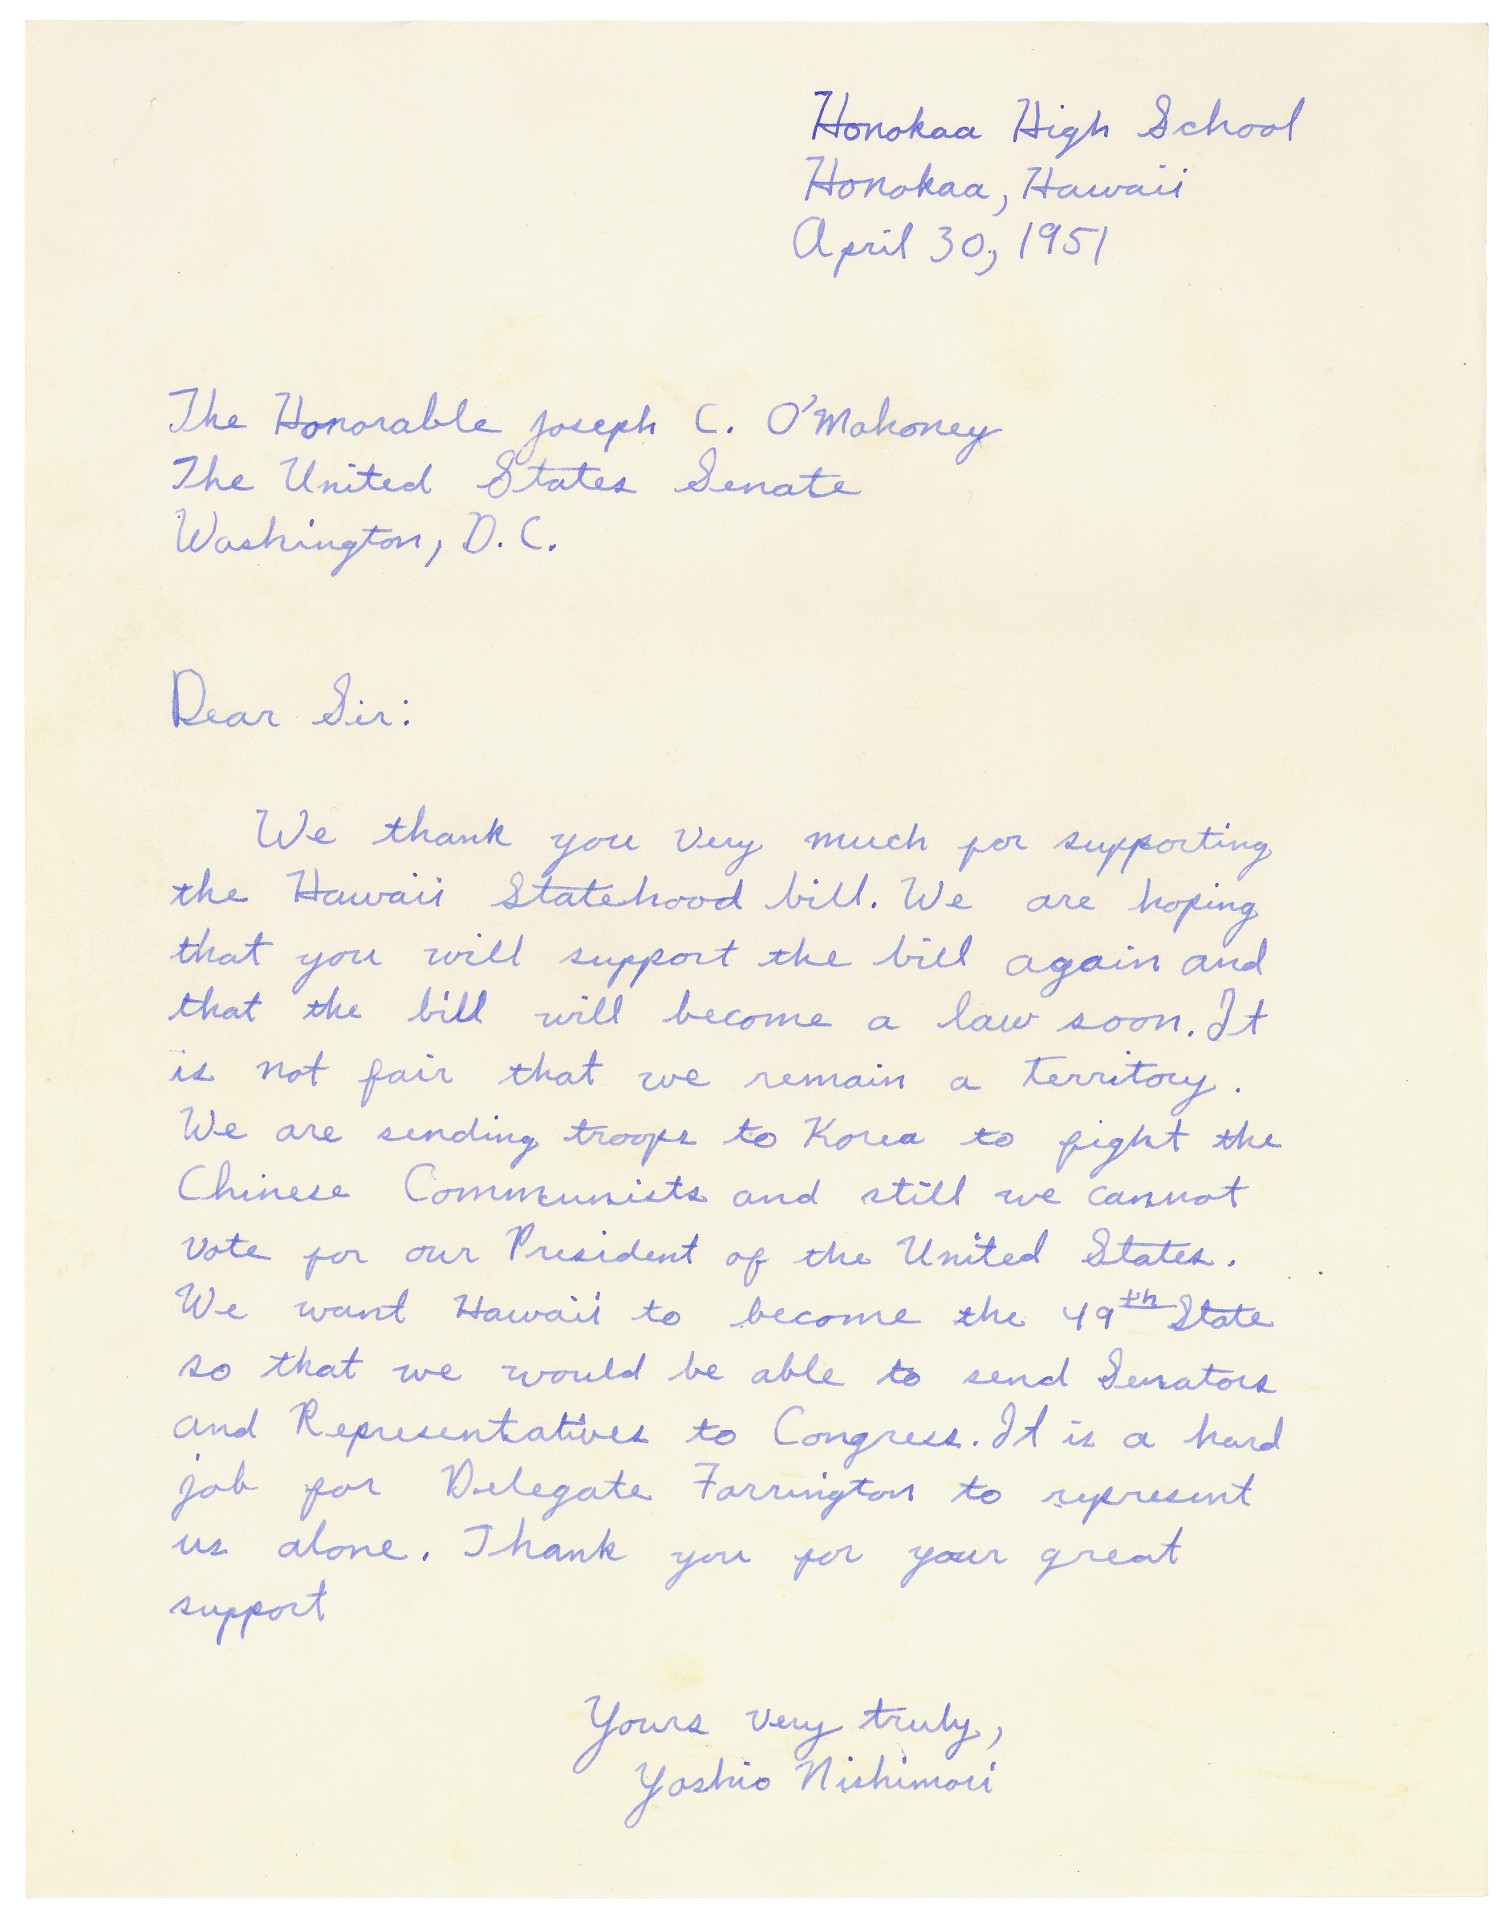 Honokaa High School
Honokaa, Hawaii
April 30, 1951
The Honorable Joseph C. O'Mahoney
The United States Senate
Washington, D.C.
Dear Sir:
We thank you very much for supporting
the Hawaii Statehood bill. We are hoping
that you will support the bill again and
that the bill will become a law soon. It
is not fair that we remain a territory.
We are sending troops to Korea to fight the
Chinese Communists and still we cannot
vote for our President of the United States.
We want Hawaii to become the 49th State
so that we would be able to send Senators
and Representatives to Congress. It is a hard
job for Delegate Farrington to represent
us alone. Thank you for your great
support
Yours very truly,
Yoshio Nishimori